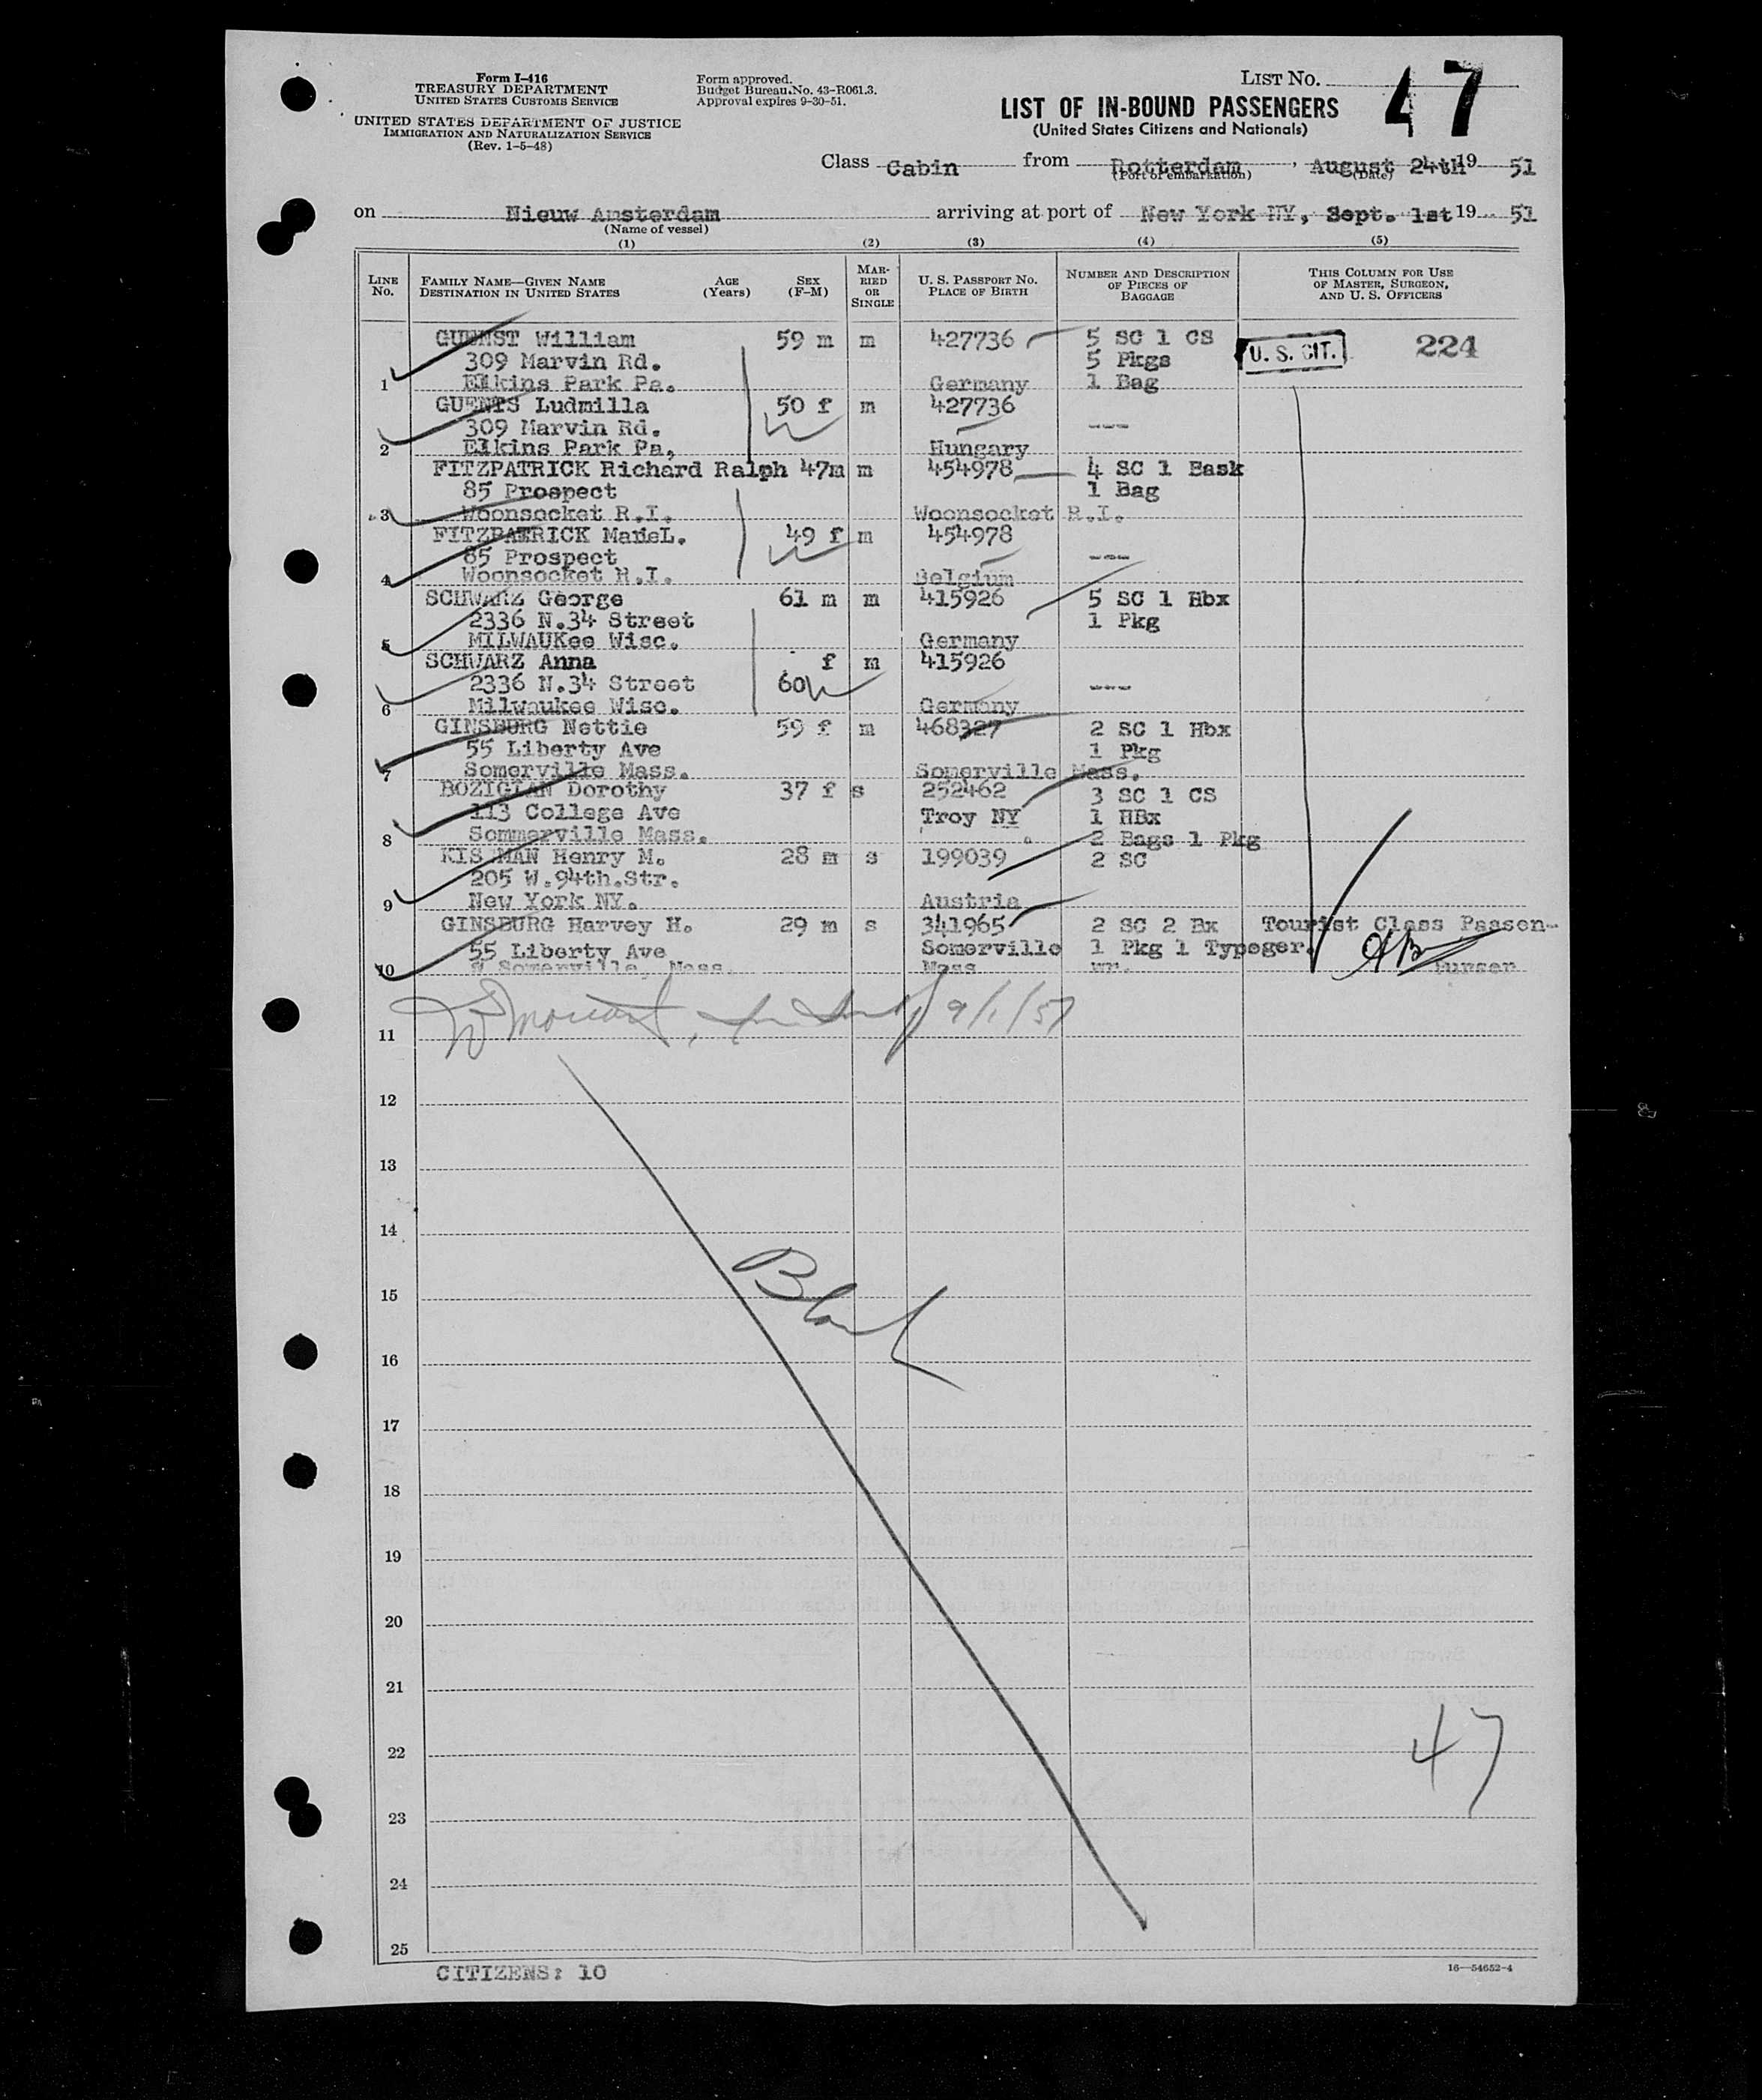 Form I-416
TREASURY DEPARTMENT
UNITED STATES CUSTOMS SERVICE
UNITED STATES DEPARTMENT OF JUSTICE
IMMIGRATION AND NATURALIZATION SERVICE
(Rev. 1-5-48)
Form approved.
Budget Bureau No. 43-R061.3.
Approval expires 9-30-51.
LIST NO. 47
LIST OF IN-BOUND PASSENGERS
(United States Citizens and Nationals)
Class Cabin from Rotterdam, August 24th 19 51
(Port of embarkation) (Date)
on Nieuw Amsterdam arriving at port of New York NY, Sept. 1st 19 51
(Name of vessel)
(1) (2) (3) (4) (5)
LINE NO. FAMILY NAME—GIVEN NAME DESTINATION IN UNITED STATES AGE (Years) SEX (F-M) MARRIED OR SINGLE U. S. PASSPORT NO. PLACE OF BIRTH NUMBER AND DESCRIPTION OF PIECES OF BAGGAGE THIS COLUMN FOR USE OF MASTER, SURGEON, AND U. S. OFFICERS
William 59 m m 427736 5 SC 1 CS U. S. CIT. 224
309 Marvin Rd. 5 Pkgs
1 Elkins Park Pa. Germany 1 Bag
GUENTS Ludmilla 50 f m 427736 ---
309 Marvin Rd.
2 Elkins Park Pa, Hungary
FITZPATRICK Richard Ralph 47m m 454978 4 SC 1 Bask
85 Prospect 1 Bag
3 Woonsocket R.I. Woonsocket R.I.
FITZPATRICK MarieL. 49 f m 454978
85 Prospect ---
4 Woonsocket R.I. Belgium
SCHWARZ George 61 m m 415926 5 SC 1 Hbx
2336 N.34 Street 1 Pkg
5 MILWAUKee Wisc. Germany
SCHWARZ Anna f m 415926
2336 N.34 Street 60 ---
6 Milwaukee Wisc. Germany
GINSBURG Nettie 59 f m 468327 2 SC 1 Hbx
55 Liberty Ave 1 Pkg
7 Somerville Mass. Somerville Mass.
BOZIGIAN Dorothy 37 f s 252462 3 SC 1 CS
113 College Ave Troy NY 1 HBx
8 Sommerville Mass. 2 Bags 1 Pkg
Henry M. 28 m s 199039 2 SC
205 W.94th.Str.
9 New York NY. Austria
GINSBURG Harvey H. 29 m s 341965 2 SC 2 Bx Tourist Class Passen-
55 Liberty Ave Somerville 1 Pkg 1 Typeger.
10 Somerville, Mass Mass wr. Purser
11 9/1/51
12
13
14
Blank
15
16
17
18
19
20
21
22 47
23
24
25
CITIZENS: 10
16—54652-4